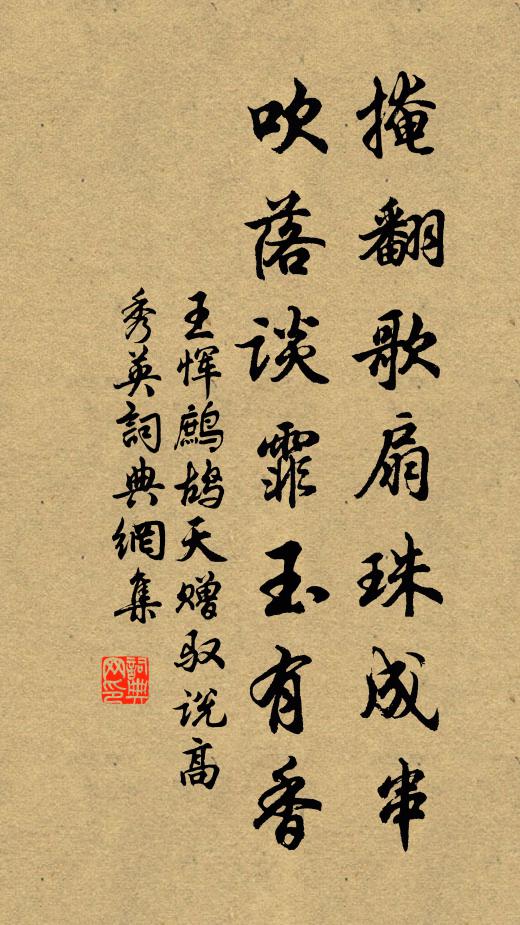 掩翻歌扇珠成串
吹落谈霏玉有香
王恽鹧鸪天赠驭说高
秀英詞典網集
詞典网印